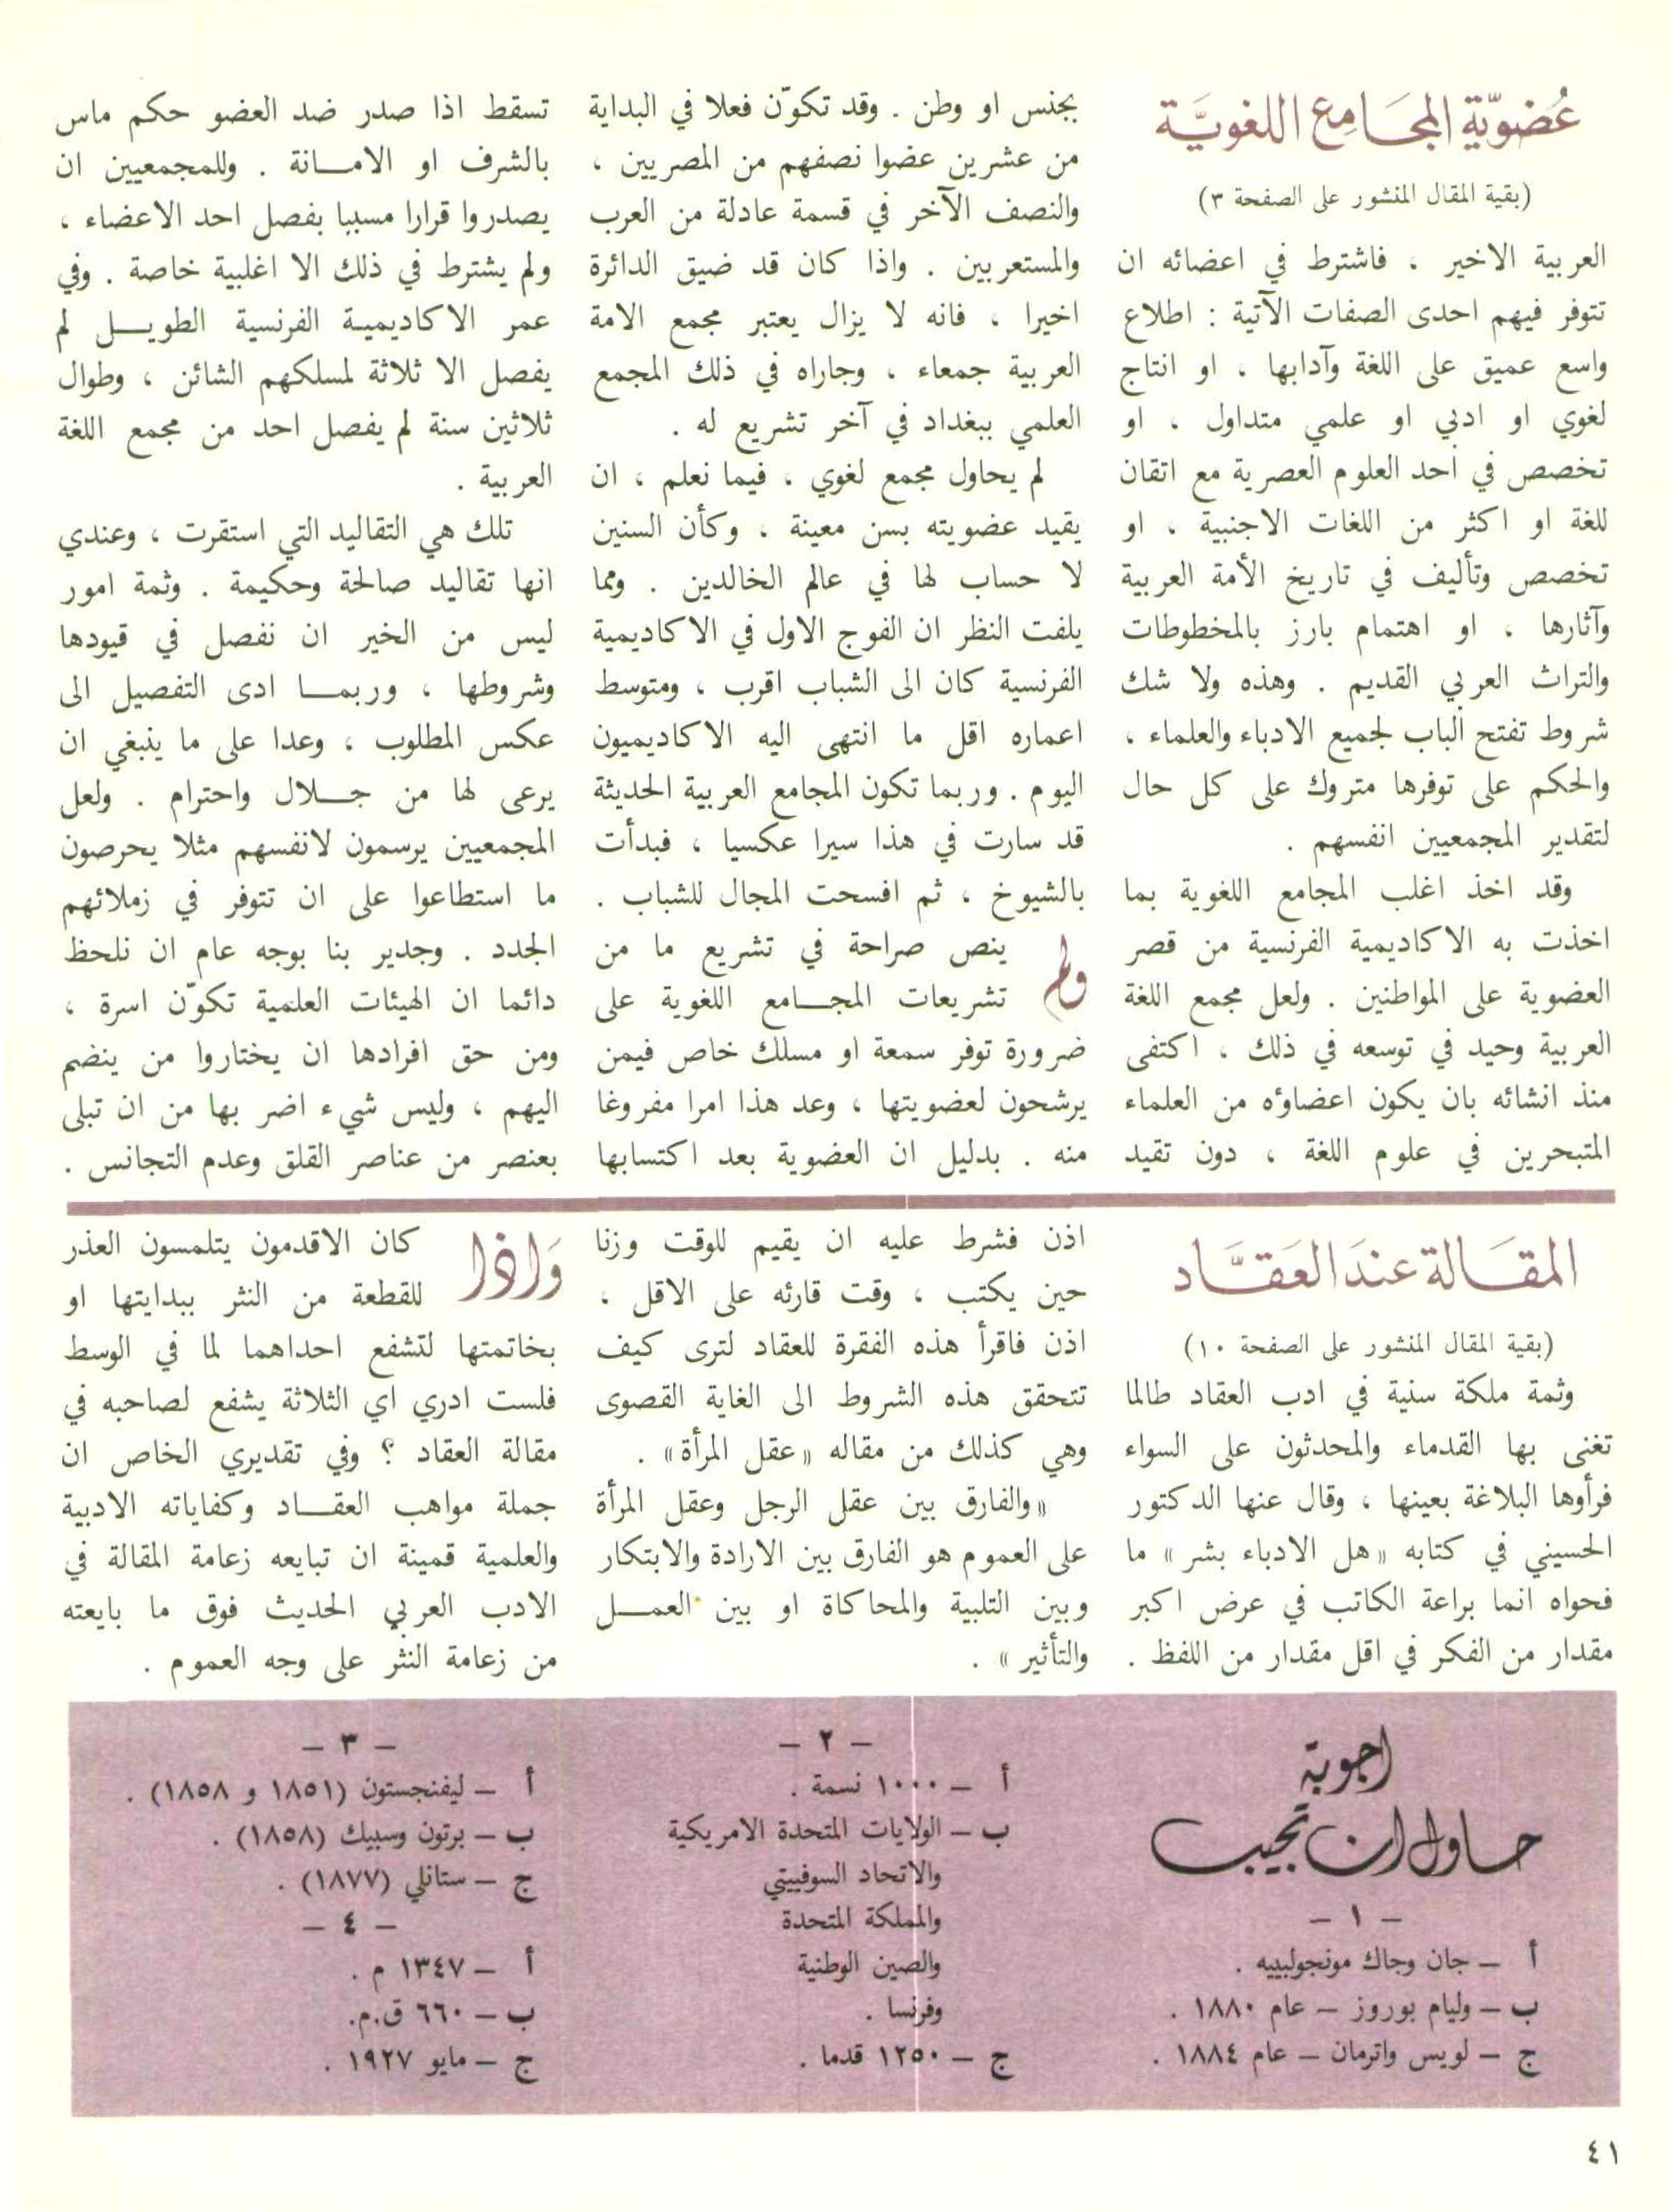 عُضويّة المجَامع اللغويَّة
(بقية المقال المنشور على الصفحة ٣)
العربية الاخير ، فاشترط في اعضائه ان
تتوفر فيهم احدى الصفات الآتية : اطلاع
واسع عميق على اللغة وآدابها ، او انتاج
لغوي او ادبي او علمي متداول ، او
تخصص في احد العلوم العصرية مع اتقان
للغة او اكثر من اللغات الاجنبية ، او
تخصص وتأليف في تاريخ الأمة العربية
وآثارها ، او اهتمام بارز بالمخطوطات
والتراث العربي القديم . وهذه ولا شك
شروط تفتح الباب لجميع الادباء والعلماء ،
والحكم على توفرها متروك على كل حال
لتقدير المجمعيين انفسهم .
وقد اخذ اغلب المجامع اللغوية بما
اخذت به الاكاديمية الفرنسية من قصر
العضوية على المواطنين . ولعل مجمع اللغة
العربية وحيد في توسعه في ذلك ، اكتفى
منذ انشائه بان يكون اعضاؤه من العلماء
المتبحرين في علوم اللغة ، دون تقيد
بجنس او وطن . وقد تكوّن فعلا في البداية
من عشرين عضوا نصفهم من المصريين ،
والنصف الآخر في قسمة عادلة من العرب
والمستعربين . واذا كان قد ضيق الدائرة
اخيرا ، فانه لا يزال يعتبر مجمع الامة
العربية جمعاء ، وجاراه في ذلك المجمع
العلمي ببغداد في آخر تشريع له .
لم يحاول مجمع لغوي ، فيما نعلم ، ان
يقيد عضويته بسن معينة ، وكأن السنين
لا حساب لها في عالم الخالدين . ومما
يلفت النظر ان الفوج الاول في الاكاديمية
الفرنسية كان الى الشباب اقرب ، ومتوسط
اعماره اقل ما انتهى اليه الاكاديميون
اليوم . وربما تكون المجامع العربية الحديثة
قد سارت في هذا سيرا عكسيا ، فبدأت
بالشيوخ ، ثم افسحت المجال للشباب .
ولم ينص صراحة في تشريع ما من
تشريعات المجامع اللغوية على
ضرورة توفر سمعة او مسلك خاص فيمن
يرشحون لعضويتها ، وعد هذا امرا مفروغا
منه . بدليل ان العضوية بعد اكتسابها
تسقط اذا صدر ضد العضو حكم ماس
بالشرف او الامانة . وللمجمعيين ان
يصدروا قرارا مسببا بفصل احد الاعضاء ،
ولم يشترط في ذلك الا اغلبية خاصة . وفي
عمر الاكاديمية الفرنسية الطويل لم
يفصل الا ثلاثة لمسلكهم الشائن ، وطوال
ثلاثين سنة لم يفصل احد من مجمع اللغة
العربية .
تلك هي التقاليد التي استقرت ، وعندي
انها تقاليد صالحة وحكيمة . وثمة امور
ليس من الخير ان نفصل في قيودها
وشروطها ، وربما ادى التفصيل الى
عكس المطلوب ، وعدا على ما ينبغي ان
يرعى لها من جلال واحترام . ولعل
المجمعيين يرسمون لانفسهم مثلا يحرصون
ما استطاعوا على ان تتوفر في زملائهم
الجدد . وجدير بنا بوجه عام ان نلحظ
دائما ان الهيئات العلمية تكوّن اسرة ،
ومن حق افرادها ان يختاروا من ينضم
اليهم ، وليس شيء اضر بها من ان تبلى
بعنصر من عناصر القلق وعدم التجانس .
المقَالة عندَ العَقَّاد
(بقية المقال المنشور على الصفحة ١٠)
وثمة ملكة سنية في ادب العقاد طالما
تغنى بها القدماء والمحدثون على السواء
فرأوها البلاغة بعينها ، وقال عنها الدكتور
الحسيني في كتابه «هل الادباء بشر» ما
فحواه انما براعة الكاتب في عرض اكبر
مقدار من الفكر في اقل مقدار من اللفظ .
اذن فشرط عليه ان يقيم للوقت وزنا
حين يكتب ، وقت قارئه على الاقل ،
اذن فاقرأ هذه الفقرة للعقاد لترى كيف
تتحقق هذه الشروط الى الغاية القصوى
وهي كذلك من مقاله «عقل المرأة» .
«والفارق بين عقل الرجل وعقل المرأة
على العموم هو الفارق بين الارادة والابتكار
وبين التلبية والمحاكاة او بين العمل
والتأثير» .
وَاذا كان الاقدمون يتلمسون العذر
للقطعة من النثر ببدايتها او
بخاتمتها لتشفع احداهما لما في الوسط
فلست ادري اي الثلاثة يشفع لصاحبه في
مقالة العقاد ؟ وفي تقديري الخاص ان
جملة مواهب العقاد وكفاياته الادبية
والعلمية قمينة ان تبايعه زعامة المقالة في
الادب العربي الحديث فوق ما بايعته
من زعامة النثر على وجه العموم .
اجوبة
حاول ان تجيب
– ١ –
أ – جان وجاك مونجولبييه .
ب – وليام بوروز – عام ١٨٨٠ .
ج – لويس واترمان – عام ١٨٨٤ .
– ٢ –
أ – ١٠٠٠ نسمة .
ب – الولايات المتحدة الامريكية
والاتحاد السوفييتي
والمملكة المتحدة
والصين الوطنية
وفرنسا .
ج – ١٢٥٠ قدما .
– ٣ –
أ – ليفنجستون (١٨٥١ و ١٨٥٨) .
ب – برتون وسبيك (١٨٥٨) .
ج – ستانلي (١٨٧٧) .
– ٤ –
أ – ١٣٤٧ م .
ب – ٦٦٠ ق.م.
ج – مايو ١٩٢٧ .
٤١